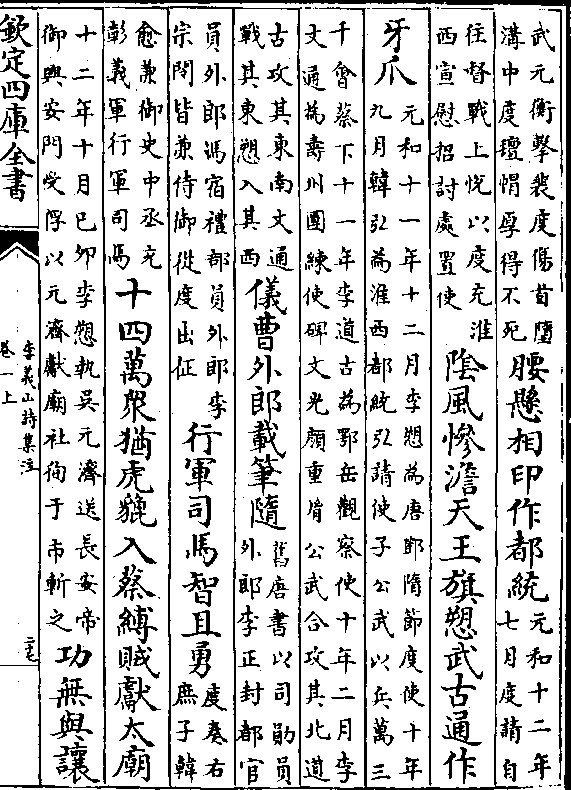 武元衡擊裴度傷首墮
溝中度氊帽厚得不死
腰懸相印作都統
元和十二年
七月度請自
往督戰上悅以度充淮
西宣慰招討處置使
陰風慘澹天王旗愬武古通作
牙爪
元和十一年十二月李愬為唐鄧隋節度使十年
九月韓弘為淮西都統弘請使子公武以兵萬三
千會蔡下十一年李道古為鄂岳觀察使十年二月李
文通為壽州團練使碑文光顔重胤公武合攻其北道
古攻其東南文通
戰其東愬入其西
儀曹外郎載筆隨
舊唐書以司勛員
外郎李正封都官
員外郎馮宿禮部員外郎李
宗閔皆兼侍御從度出征
行軍司馬智且勇
度奏右
庶子韓
愈兼御史中丞充
彰義軍行軍司馬
十四萬衆猶虎貔入蔡縛賊獻太廟
十二年十月己卯李愬執吳元濟送長安帝
御興安門受俘以元濟獻廟社徇于市斬之
功無與讓
欽定四庫全書
李義山詩集注
卷一上